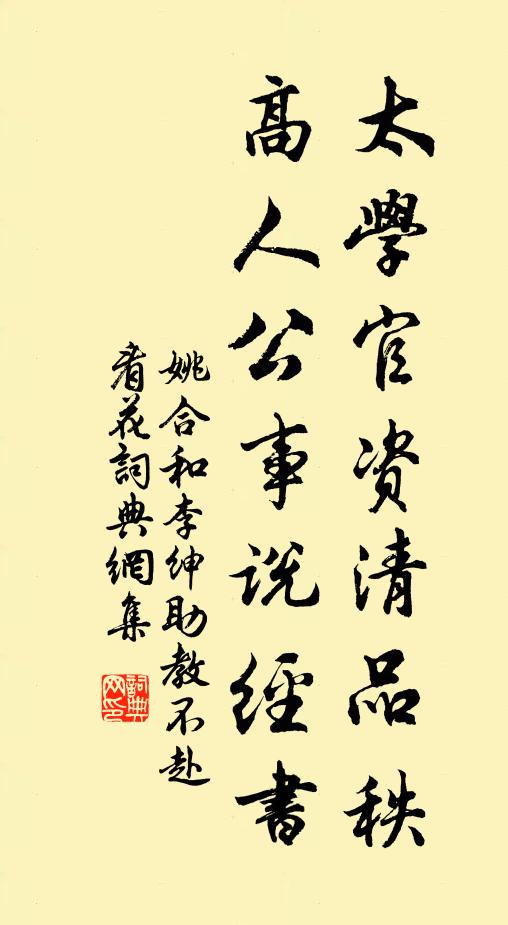 太學官资清品秩
高人公事説經書
姚合和李绅助教不赴
看花詞典網集
詞典网印